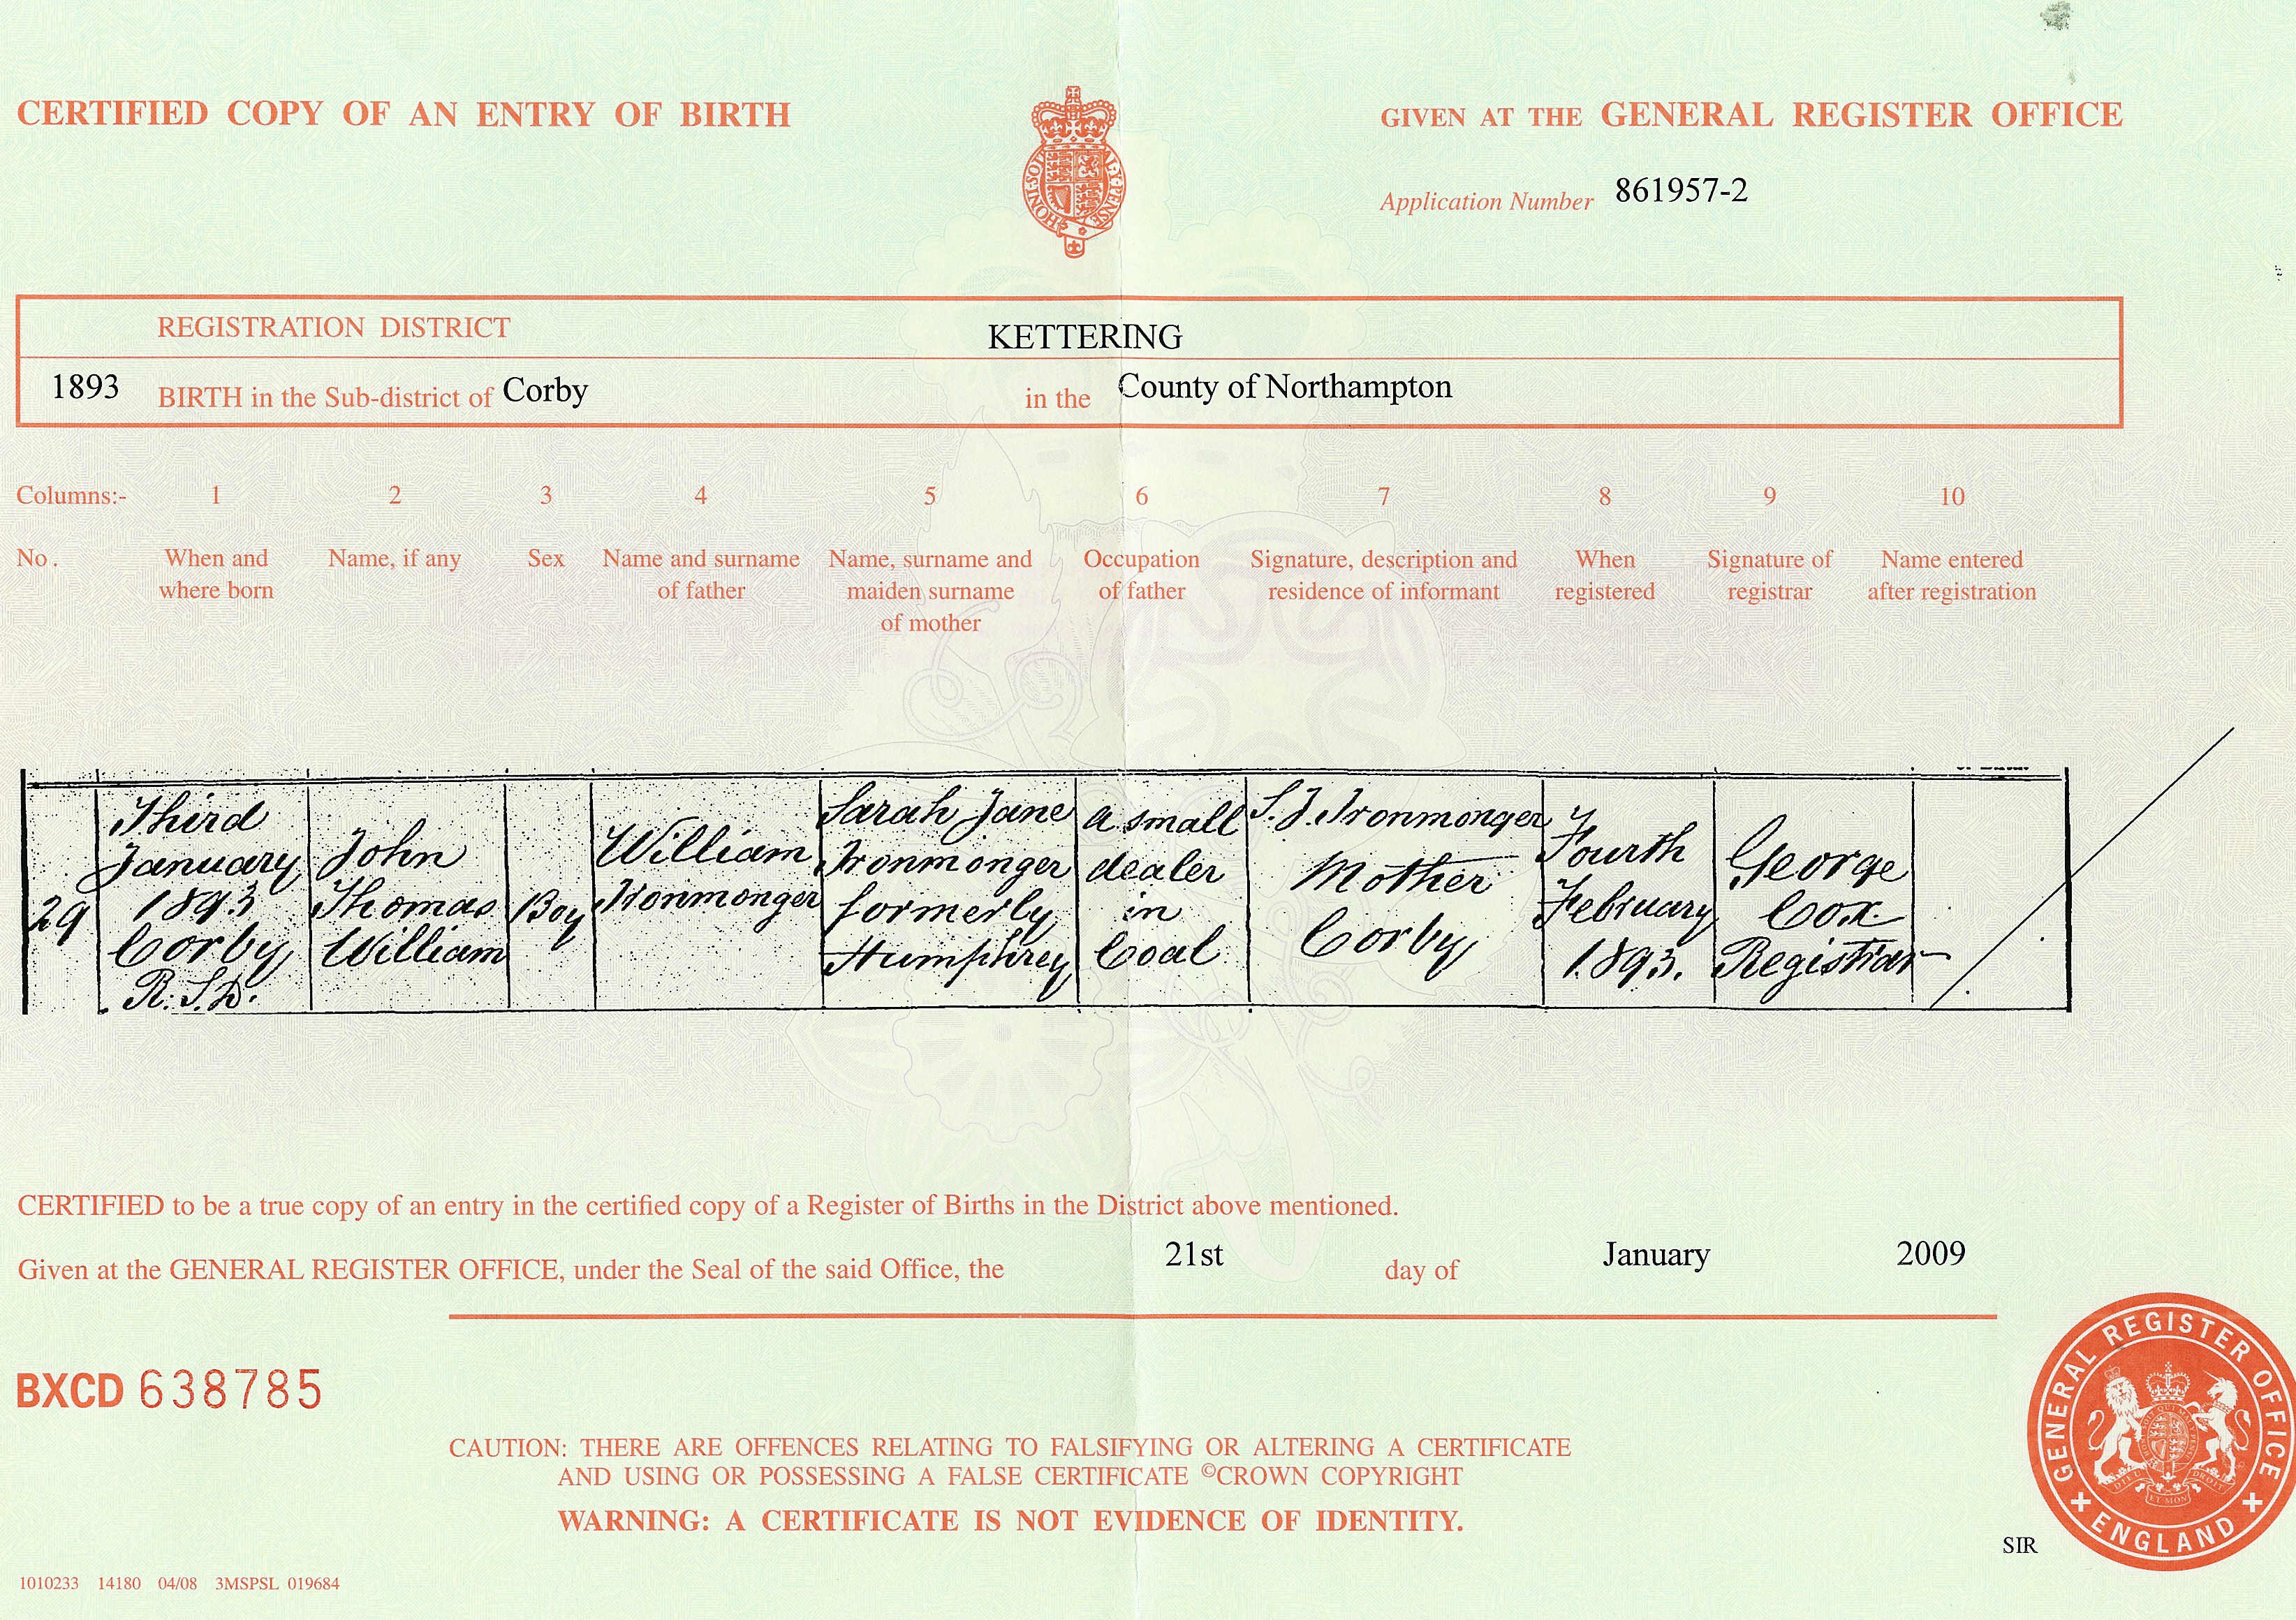 CERTIFIED COPY OF AN ENTRY OF BIRTH
GIVEN AT THE GENERAL REGISTER OFFICE
HONI SOIT Y PENSE
Application Number 861957-2
REGISTRATION DISTRICT KETTERING
1893 BIRTH in the Sub-district of Corby in the County of Northampton
Columns:- 1 2 3 4 5 6 7 8 9 10
No. When and where born
Name, if any
Sex
Name and surname of father
Name, surname and maiden surname of mother
Occupation of father
Signature, description and residence of informant
When registered
Signature of registrar
Name entered after registration
29
Third
January
1893
Corby
R.S.D.
John
Thomas
William
Boy
William
Ironmonger
Sarah Jane
Ironmonger
formerly
Humphrey
a small
dealer
in
Coal
S. J. Ironmonger
Mother
Corby
Fourth
February
1893.
George
Cox
Registrar
CERTIFIED to be a true copy of an entry in the certified copy of a Register of Births in the District above mentioned.
Given at the GENERAL REGISTER OFFICE, under the Seal of the said Office, the 21st day of January 2009
BXCD 638785
CAUTION: THERE ARE OFFENCES RELATING TO FALSIFYING OR ALTERING A CERTIFICATE
AND USING OR POSSESSING A FALSE CERTIFICATE ©CROWN COPYRIGHT
WARNING: A CERTIFICATE IS NOT EVIDENCE OF IDENTITY.
GENERAL REGISTER OFFICE
ENGLAND
DIEU ET MON DROIT
SIR
1010233 14180 04/08 3MSPSL 019684